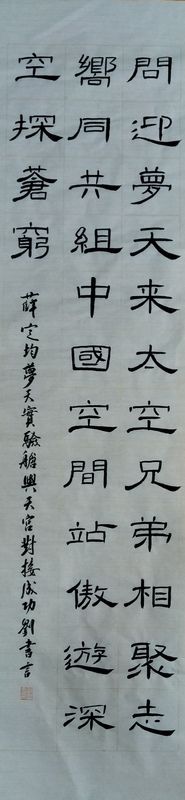 問迎夢天来太空兄弟相聚志
嚮同共組中國空間站傲遊深
空探蒼窮
薛定均夢天實驗艙與天宮對接成功劉書言